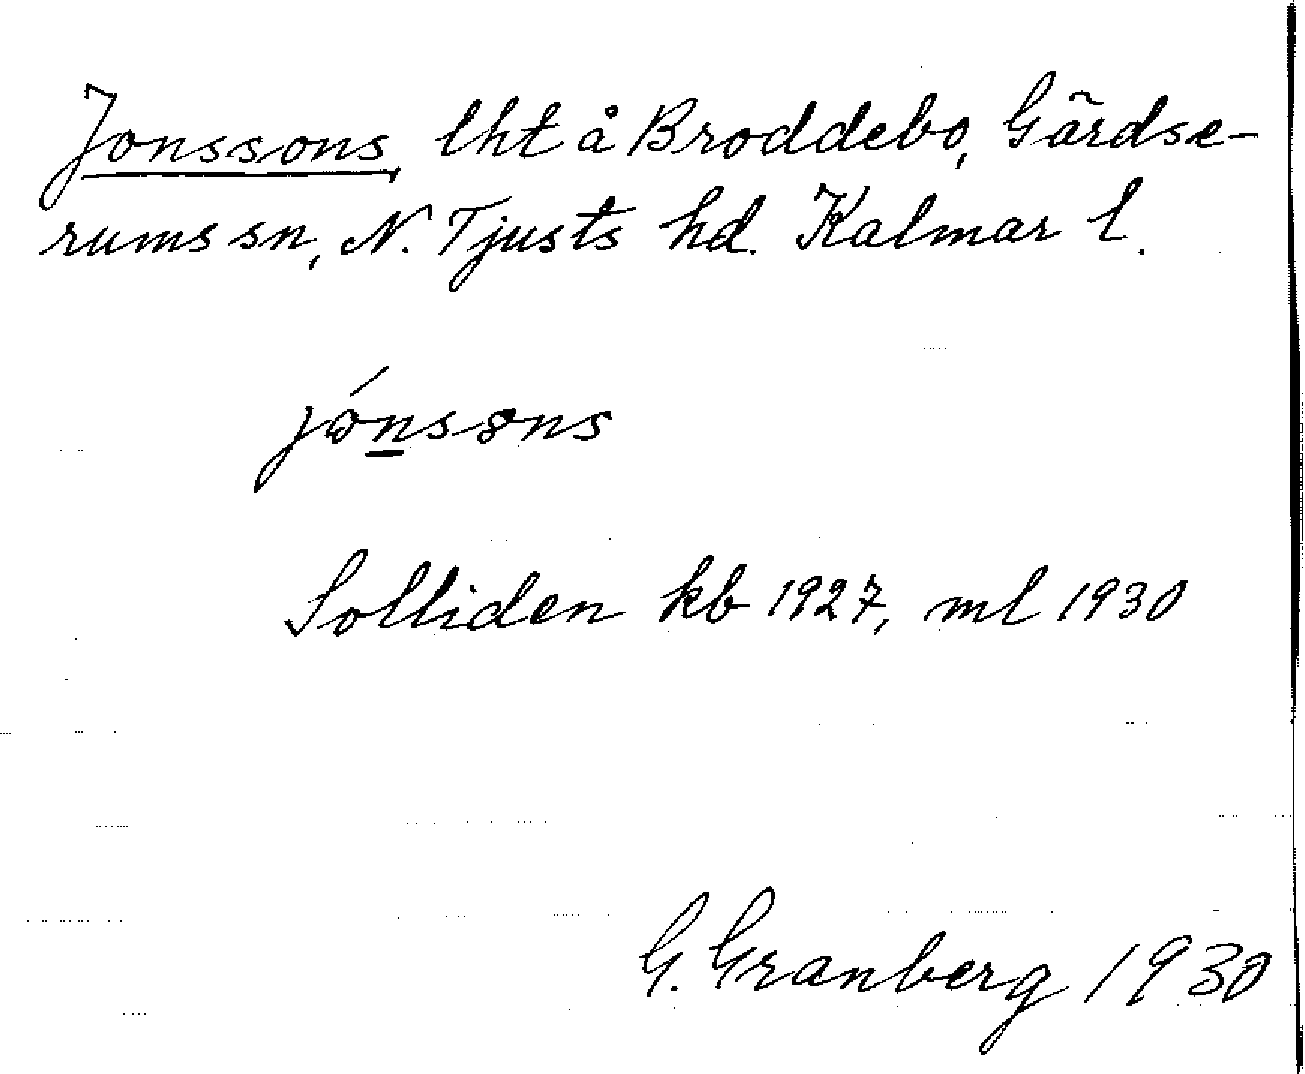 Jonssons, lht å Broddebo, Gärdse-
rums sn, N. Tjusts hd. Kalmar l.
jónsɷns
Solliden kb 1927, ml 1930
G. Granberg 1930